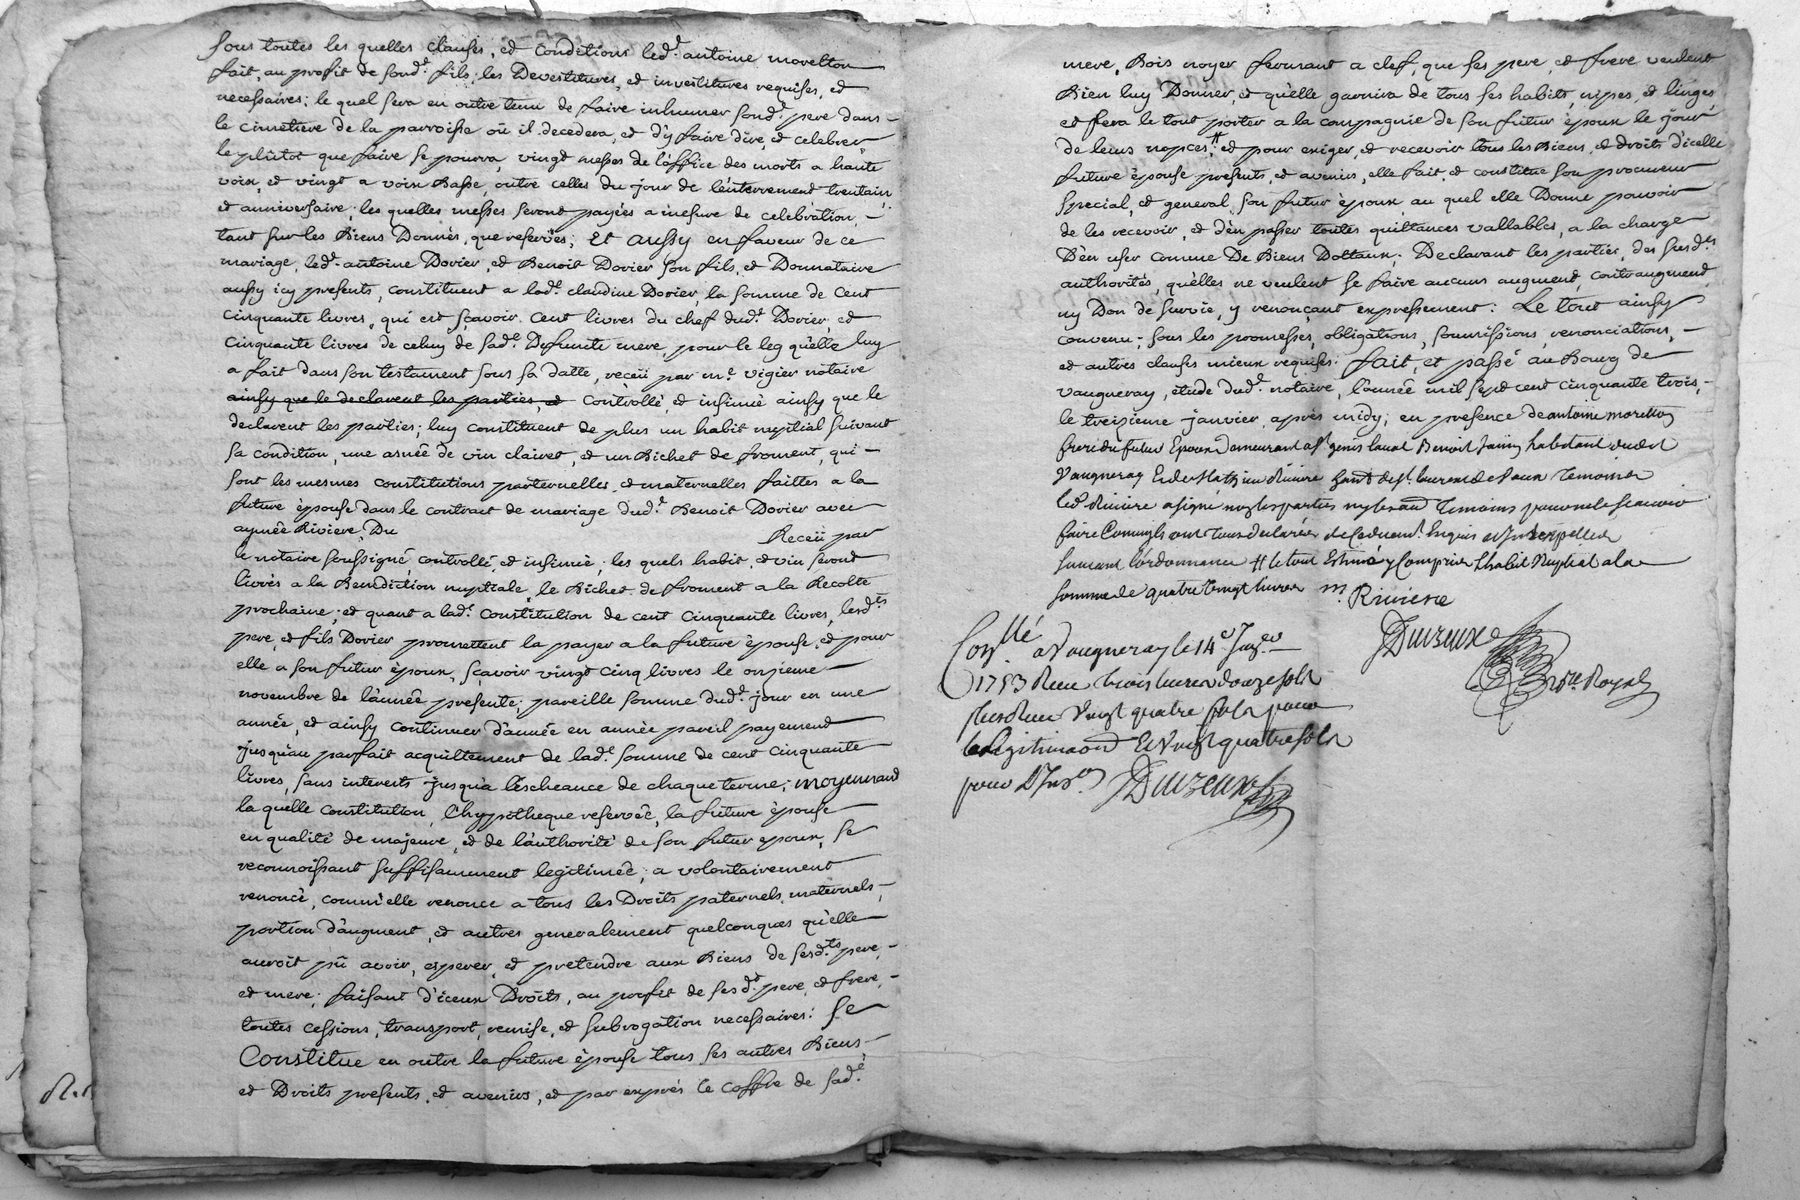 Sous toutes les quelles clauses, et conditions led.t antoine morellon
fait, au profit de sond.t fils, les Devestitures, et investitures requises, et
necessaires; le quel sera en outre tenu de faire inhumer sond.t pere dans
le cimetiere de la parroisse où il decedera, et d'y faire dire, et celebrer
le plûtot que faire se pourra, vingt messes de l'office des morts a haute
voix, et vingt a voix Basse, outre celles du jour de l'enterrement trentain
et anniversaire. les quelles messes seront payées a mesure de celebration,
tant sur les Biens Donnés, que reservés; Et aussy en faveur de ce
mariage, led.t antoine Dorier, et Benoit Dorier son fils, et Donnataire
aussy icy presents, constituent a lad.e claudine Dorier, la somme de Cent
cinquante livres, qui est sçavoir Cent livres du chef dud.t Dorier, et
cinquante livres de celuy de sad.e Defunte mere, pour le leg qu'elle luy
a fait dans son testament sous sa datte, receü par m.e vigier notaire
ainsy que le declarent les parties, et Controllé, et insinué ainsy que le
declarent les parties; luy constituent de plus un habit nuptial suivant
sa condition, une asnée de vin clairet, et un Bichet de froment, qui
sont les mesmes constitutions paternelles, et maternelles faittes a la
future épouse dans le contract de mariage dud.t Benoit Dorier avec
aymée Riviere, Du Receü par
le notaire soussigné controllé, et insinué, les quels habit, et vin seront
livrés a la Benediction nuptiale, le Bichet de froment a la Recolte
prochaine; et quant a lad.e Constitution de cent cinquante livres, lesd.ts
pere, et fils Dorier promettent la payer a la future épouse, et pour
elle a son futur époux, sçavoir vingt cinq livres le onzieme
novembre de l'année presente; pareille somme dud.t jour en une
année, et ainsy continuer d'année en année pareil payement
jusqu'au parfait acquittement de lad.e somme de cent cinquante
livres, sans interests jusqu'a l'escheance de chaque terme; moyennant
la quelle Constitution, l'hypotheque reservée, la future épouse
en qualité de majeure, et de l'authorité de son futur epoux, se
reconnoissant suffisamment legitimée; a volontairement
renoncé, comm'elle renonce a tous les Droits paternels, maternels,
portion d'augment, et autres generalement quelconques qu'elle
auroit pû avoir, esperer, et pretendre aux Biens de sesd.ts pere,
et mere; faisant d'iceux Droits, au profit de sesd.ts pere, et frere,
toutes cessions, transport, remise, et subrogation necessaires: Se
Constitue en outre la future épouse tous ses autres Biens
et Droits presents, et avenirs, et par exprés le coffre de sad.e
mere, Bois noyer fermant a clef, que ses pere, et frere veulent
Bien luy Donner, et qu'elle garnira de tous ses habits, nipes, et linges
et fera le tout porter a la compagnie de son futur époux le jour
de leurs nopces # et pour exiger, et recevoir tous les Biens, et droits d'icelle
future épouse presents, et avenirs, elle fait et constitue son procureur
special, et general, son futur époux, au quel elle Donne pouvoir
de les recevoir, et d'en passer toutes quittances vallables, a la charge
D'en user comme De Biens Dottaux; Declarant les parties, des susd.tes
authorités, qu'elles ne veulent se faire aucuns augment, contraugment,
ny Don de survie, y renonçant expressement: Le tout ainsy
convenu; sous les promesses, obligations, soumissions, renonciations,
et autres clauses mieux requises. fait, et passé au Bourg de
Vaugneray, étude dud.t notaire, l'année mil sept cent cinquante trois,
le treizieme janvier, après midy; en presence de antoine morellon
frere du futur Epoux demeurant a S.t genis laval Benoit Jamin habitant dudit
Vaugneray Et de Mathieu Riviere hant de S.t laurent de Vaux temoins
led.t Riviere a signé non les parties ny led.t Jamin temoins pour ne le sçavoir
faire Comm'ils ont tous declarés de ce duement Enquis et Interpellés
suivant l'ordonnance # le tout Estimé y Compris l'habit Nuptial a la
somme de quatre vingt livres m. Riviere
Con.llé a Vaugneray le 14.e Janv.er
1753 Receu trois livres douze sols
plus Receu vingt quatre sols pour
la legitimaon Et vingt quatre sols
pour l'Ins.on Duizeux
Duizeux
n.re Royal